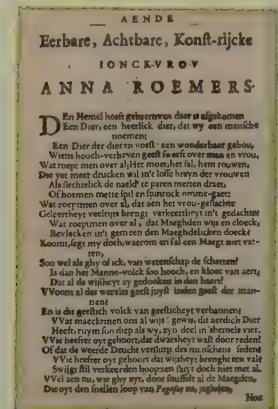 AENDE
Eerbare, Achtbare, Konst-rijcke
IONCKVROV
ANNA ROEMERS.
DEn Hemel heeft gebaert van daer is afgekomen
Een Dier, een heerlick dier, dat wy een mensche
noemen;
Een Dier der dieren vorst, een wonderbaer gebou,
Wiens hooch-verheven geest sweeft over man en vrou,
Wat roept men over al, Het moet, het sal, hem rouwen,
Die yet meer drucken wil in't losse breyn der vrouwen
Als slechtelick de naeld' te paren metten draet,
Of hoemen mette spil en spinrock omme-gaet:
Wat roeptmen over al, dat aen het vrou-geslachte
Geleertheyt veeltijts brengt verkeertheyt in't gedachte
Wat roeptmen over al, dat Maeghden wijs en cloeck,
Bevlecken in't gemeen den Maeghdelicken doeck?
Koomt, segt my doch, waerom en sal een Maegt niet vat-
ten,
Soo wel als ghy of ick, van wetenschap de schatten?
Is dan het Manne-volck soo hooch, en kloec van aert,
Dat al de wijsheyt zy gedooken in den baert?
VVoont al des werelts geest juyst inden geest der man-
nen?
En is die geestlich volck van geestlicheyt verbannen?
VVat maecktmen ons al wijs? gewis, dit aerdich Dier
Heeft, ruym soo diep als wy, zyn deel in 'themels vier.
VVie heeft er oyt gehoort, dat dwaesheyt wast door reden?
Of dat de weerde Deucht verslimt des menschens seden?
VVie heeft er oyt gehoort dat wijsheyt brenght ten val?
Swijgt stil verkeerden hoop, ten sluyt doch niet met al.
VVel aen nu, wie ghy zyt, door sinnisse al de Maegden,
Die oyt den snellen loop van Pegasus na-jaghden,
Hoe